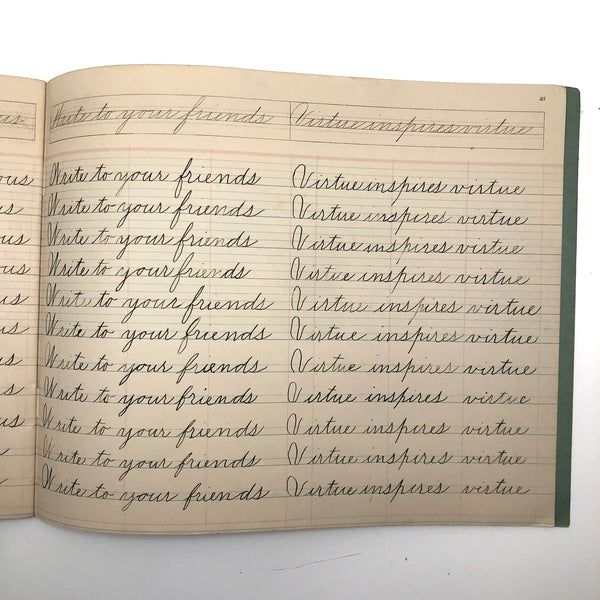 Write to your friends Virtue inspires virtue
Write to your friends Virtue inspires virtue
Write to your friends Virtue inspires virtue
Write to your friends Virtue inspires virtue
Write to your friends Virtue inspires virtue
Write to your friends Virtue inspires virtue
Write to your friends Virtue inspires virtue
Write to your friends Virtue inspires virtue
Write to your friends Virtue inspires virtue
Write to your friends Virtue inspires virtue
Write to your friends Virtue inspires virtue
Write to your friends Virtue inspires virtue